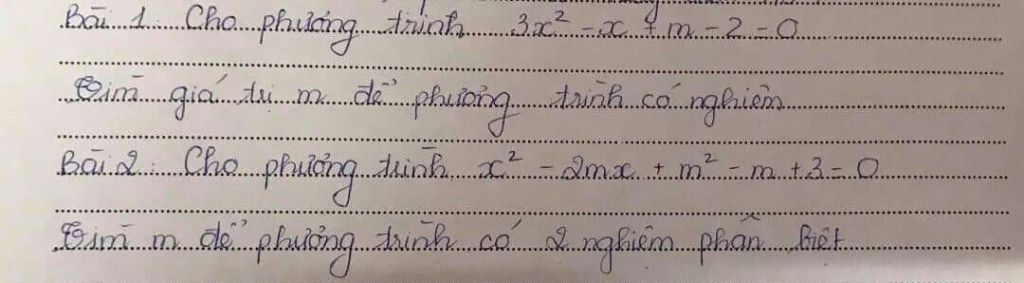 Bài 1: Cho phương trình 3x² - x + m - 2 = 0
Tìm giá trị m để phương trình có nghiệm
Bài 2: Cho phương trình x² - 2mx + m² - m + 3 = 0
Tìm m để phương trình có 2 nghiệm phân biệt